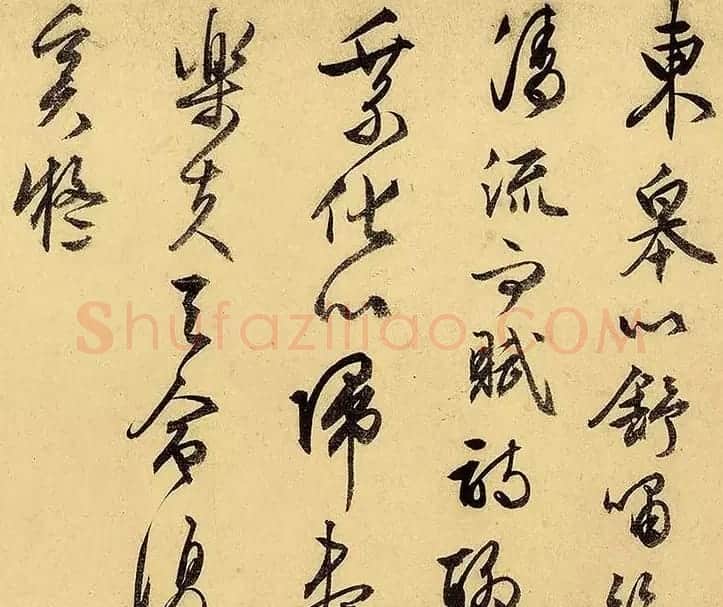 東皋以舒嘯
清流而賦詩聊
乘化以歸盡
樂夫天命復
奚疑
Shufaziliao.COM